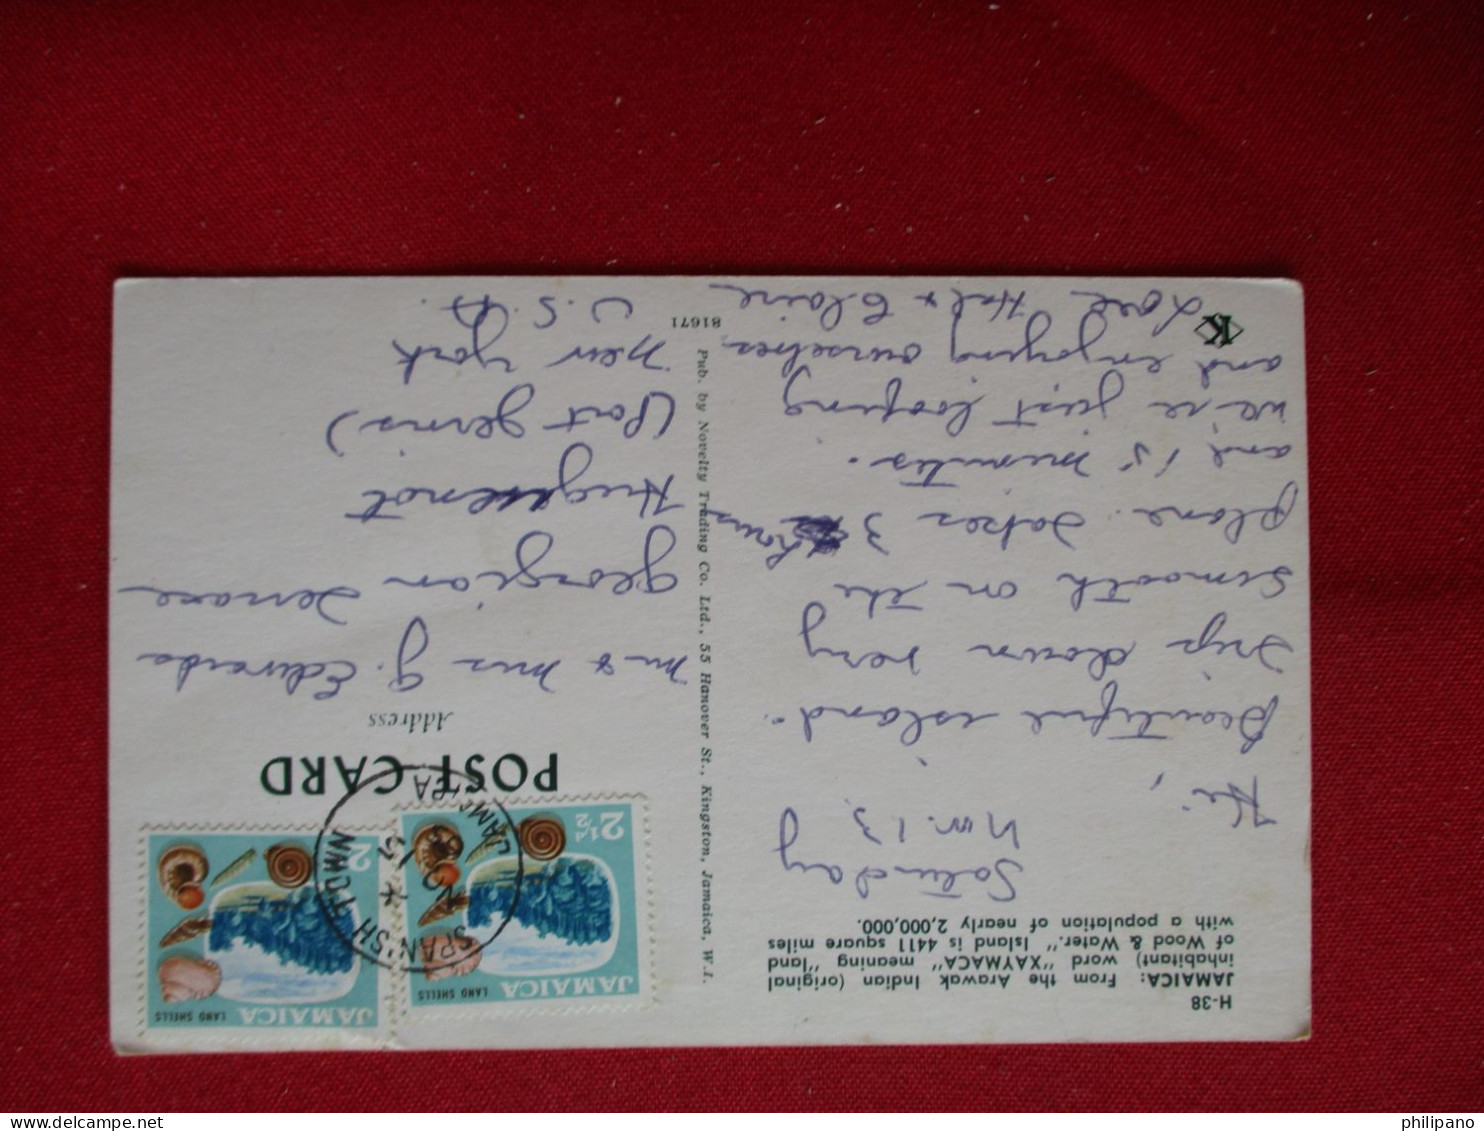 H-38
JAMAICA: From the Arawak Indian (original
inhabitant) word "XAYMACA" meaning "land
of Wood & Water." Island is 4411 square miles
with a population of nearly 2,000,000.
Saturday
Nov. 13
Hi,
Beautiful island.
Trip down very
smooth on the
plane. Takes 3 hours
and 15 minutes.
We're just loafing
and enjoying ourselves
Love Hal & Claire
K
81671
Pub. by Novelty Trading Co. Ltd., 55 Hanover St., Kingston, Jamaica, W.I.
POST CARD
Address
M & Mrs J. Edwards
Georgian Terrace
Huguenot
(Port Jervis)
New York
U.S.A.
JAMAICA
LAND SHELLS
2½d
JAMAICA
LAND SHELLS
2
SPANISH TOWN
JAMAICA
philipano